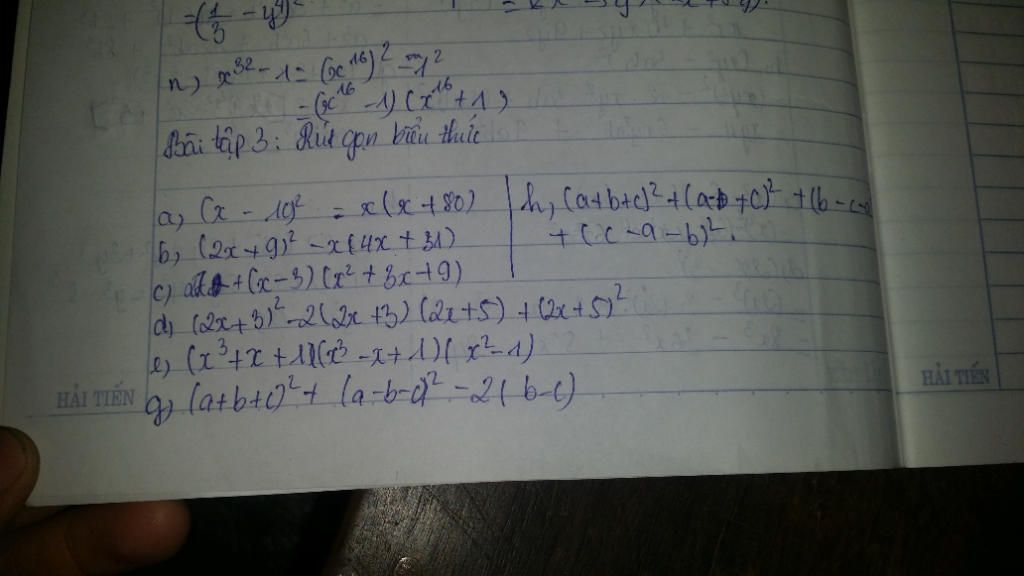 =(1/3 - y⁴)²
n, x³² - 1 = (x¹⁶)² - 1²
= (x¹⁶ - 1) (x¹⁶ + 1)
Bài tập 3: Rút gọn biểu thức
a, (x - 10)² = x(x + 80)
b, (2x + 9)² - x(4x + 31)
c, + (x - 3) (x² + 3x + 9)
d, (2x + 3)² - 2(2x + 3) (2x + 5) + (2x + 5)²
e, (x³ + x + 1)(x³ - x + 1) (x² - 1)
g, (a+b+c)² + (a-b-c)² - 2( b-c)
h, (a+b+c)² + (a-b+c)² + (b-c
+ (c - a - b)².
HẢI TIẾN
HẢI TIẾN